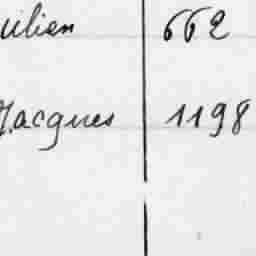 ulien 662
Jacques 1198